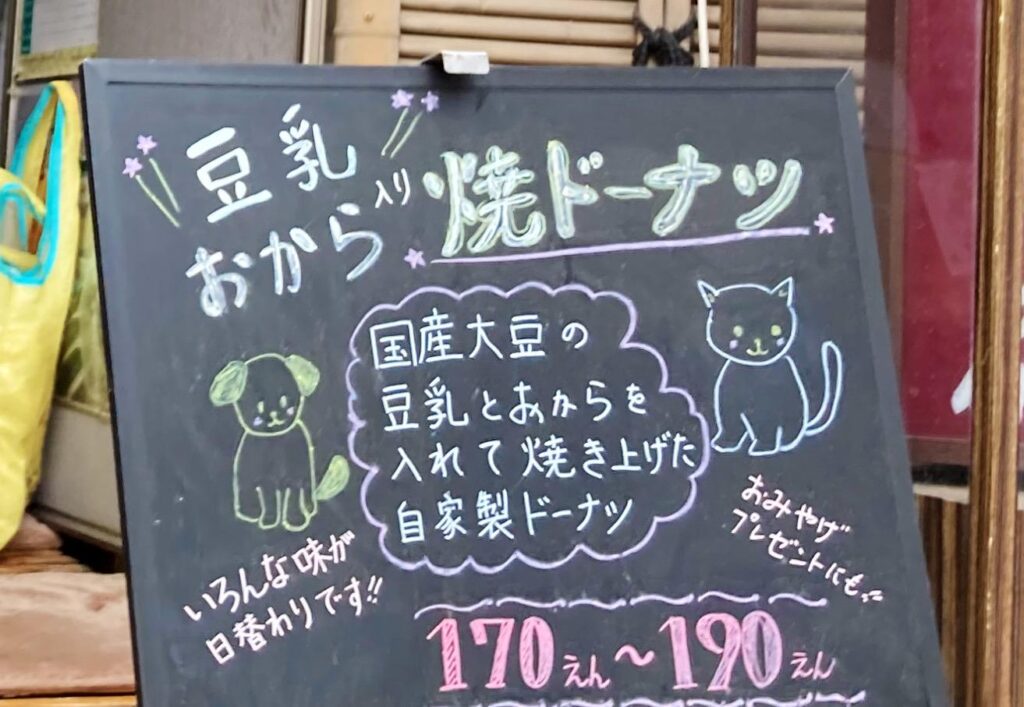 豆乳
おから
入り
焼ドーナツ
国産大豆の
豆乳とおからを
入れて焼き上げた
自家製ドーナツ
いろんな味が
日替わりです!!
おみやげ
プレゼントにも
170えん〜190えん